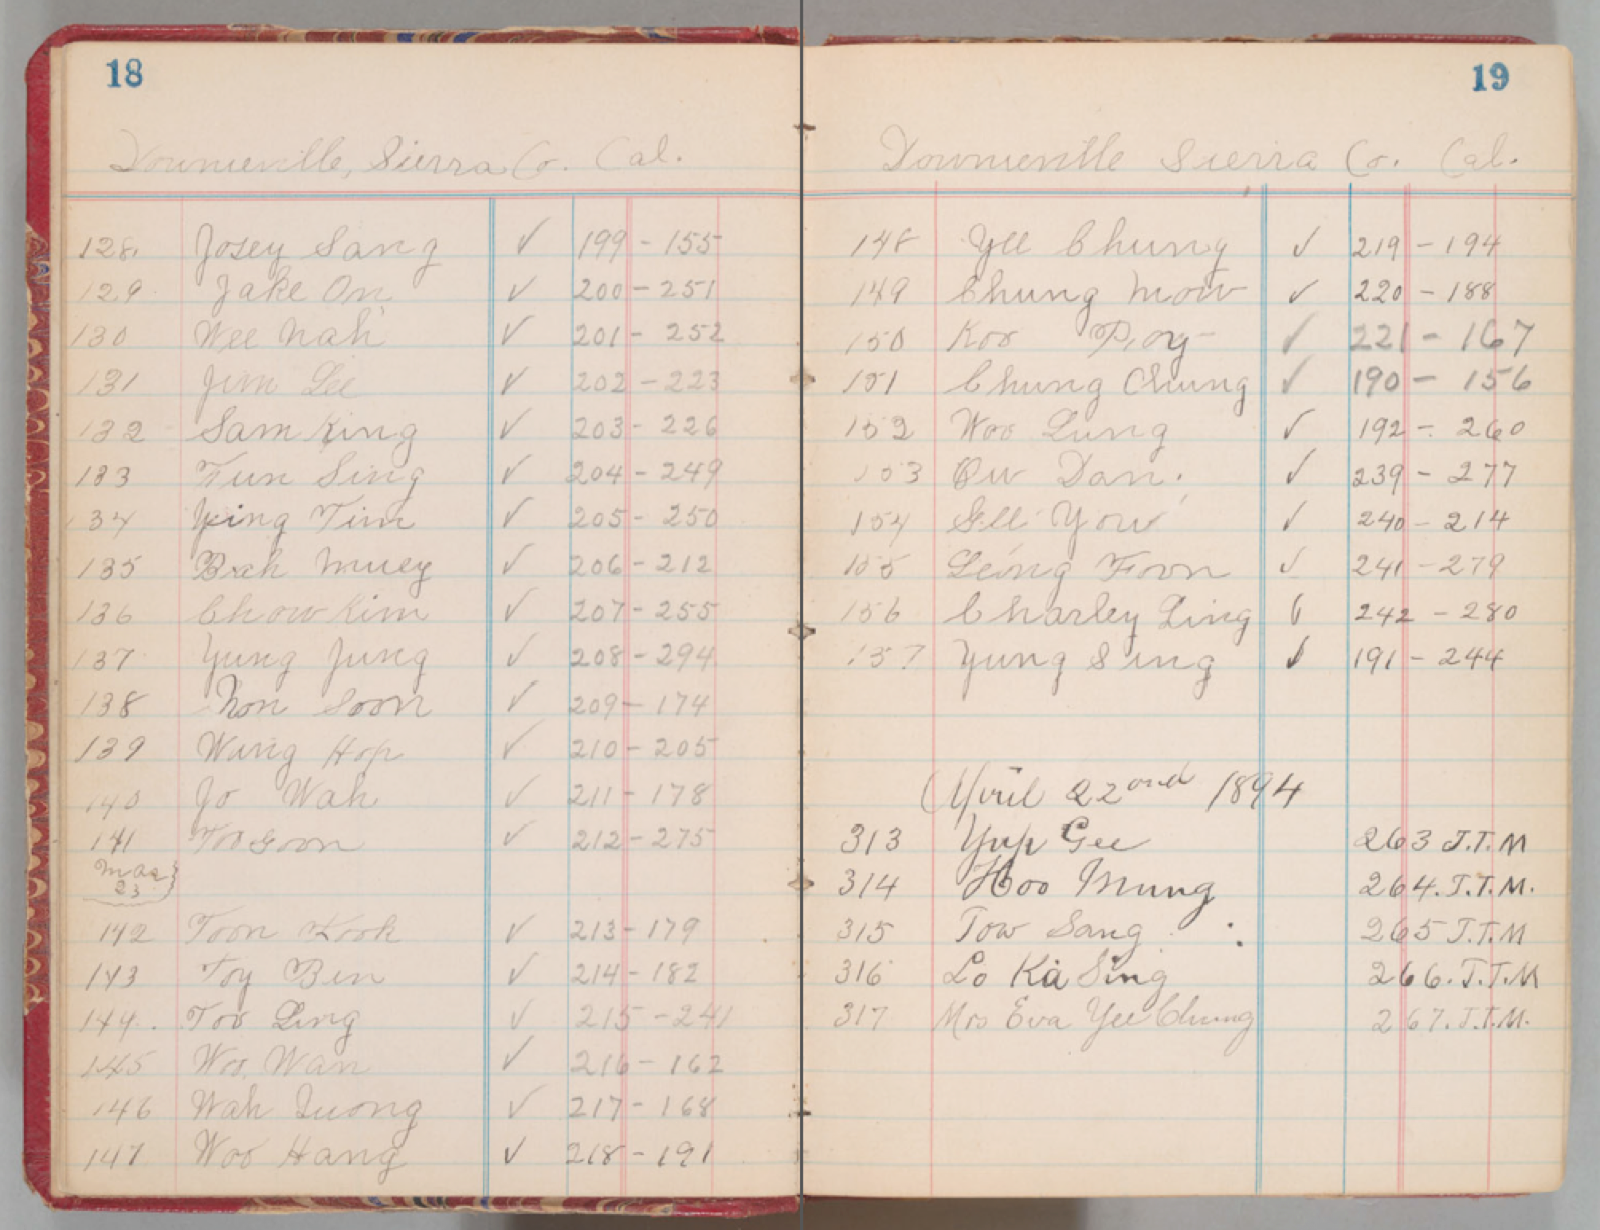 18
Downieville, Sierra Co. Cal.
128. Josey Sang ✓ 199 - 155
129. Jake On ✓ 200 - 251
130 Wee Nah ✓ 201 - 252
131 Jim Lee ✓ 202 - 223
132 Sam King ✓ 203 - 226
133 Fun Sing ✓ 204 - 249
134 Ying Tim ✓ 205 - 250
135 Bah Muey ✓ 206 - 212
136 Chow Kim ✓ 207 - 255
137 Yung Jung ✓ 208 - 294
138 Soon ✓ 209 - 174
139 Wung Hop ✓ 210 - 205
140 Jo Wah ✓ 211 - 178
141 Goon ✓ 212 - 275
Mar 23
142 Toon Kook ✓ 213 - 179
143 Toy Ben ✓ 214 - 182
144. Too Ling ✓ 215 - 241
145 Woo Wan ✓ 216 - 162
146 Wah Quong ✓ 217 - 168
147 Woo Hang ✓ 218 - 191
19
Downieville Sierra Co. Cal.
148 Yee Chung ✓ 219 - 194
149 Chung Mow ✓ 220 - 188
150 Koo Poy ✓ 221 - 167
151 Chung Chung ✓ 190 - 156
152 Woo Lung ✓ 192 - 260
153 Ow Dan. ✓ 239 - 277
154 Gee You ✓ 240 - 214
155 Leong Foon ✓ 241 - 279
156 Charley Ling ✓ 242 - 280
157 Yung Sing ✓ 191 - 244
April 22nd 1894
313 Yup Gee 263 J.T.M
314 Hoo Mung 264. J.T.M.
315 Tow Sang 265 J.T.M
316 Lo Ka Sing 266. J.T.M
317 Mrs Eva Yee Chung 267. J.T.M.